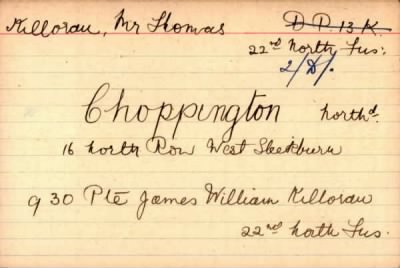 Killoran, Mr Thomas D P. 13 K.
22nd North Fus:
2/D/.
Choppington northd.
16 North Row West Sleekburn
930 Pte James William Killoran
22nd North Fus.